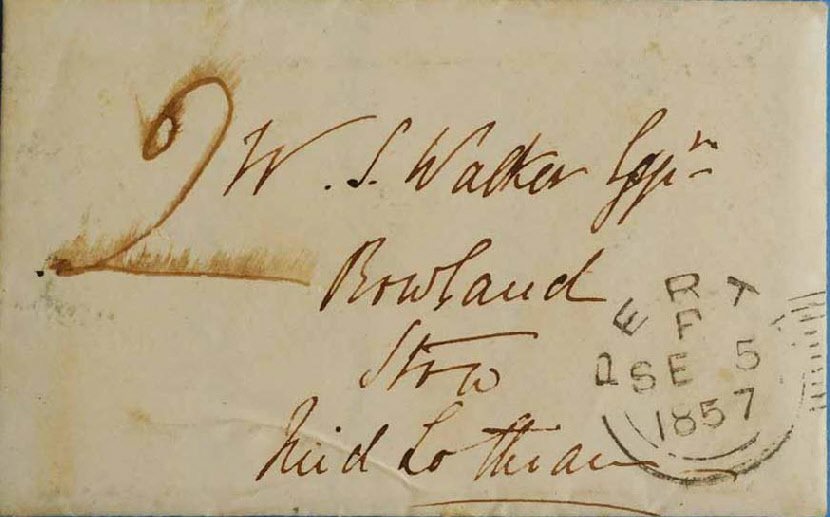 2
W. S. Walker Esqre
Bowland
Stow
Mid Lothian
PERT
F
SE 5
1857